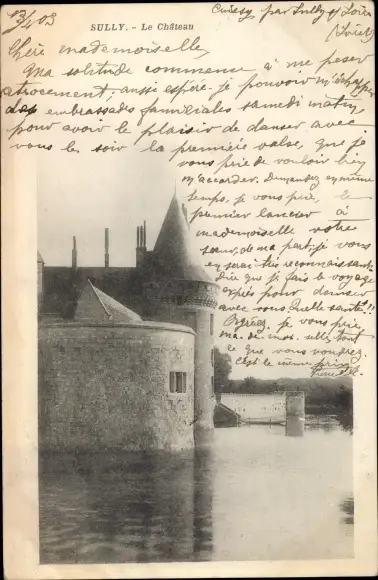 13/4 03
Cuissy par Sully s/ Loire
(Loiret)
SULLY. - Le Château
Chère mademoiselle,
Ma solitude commence à me peser
atrocement, aussi espère-je pouvoir m'échapper
des embrassades familiales samedi matin
pour avoir le plaisir de danser avec
vous le soir la première valse, que je
vous prie de vouloir bien
m'accorder. Demandez en même
temps, je vous prie, le
premier lancier à
mademoiselle votre
sœur, de ma part; je vous
en serai très reconnaissant.
Dire que je fais le voyage
exprès pour danser
avec vous. Quelle santé!!
Agréez, je vous prie,
ma de-moi-selle, tout
ce que vous voudrez.
C'est le même prix